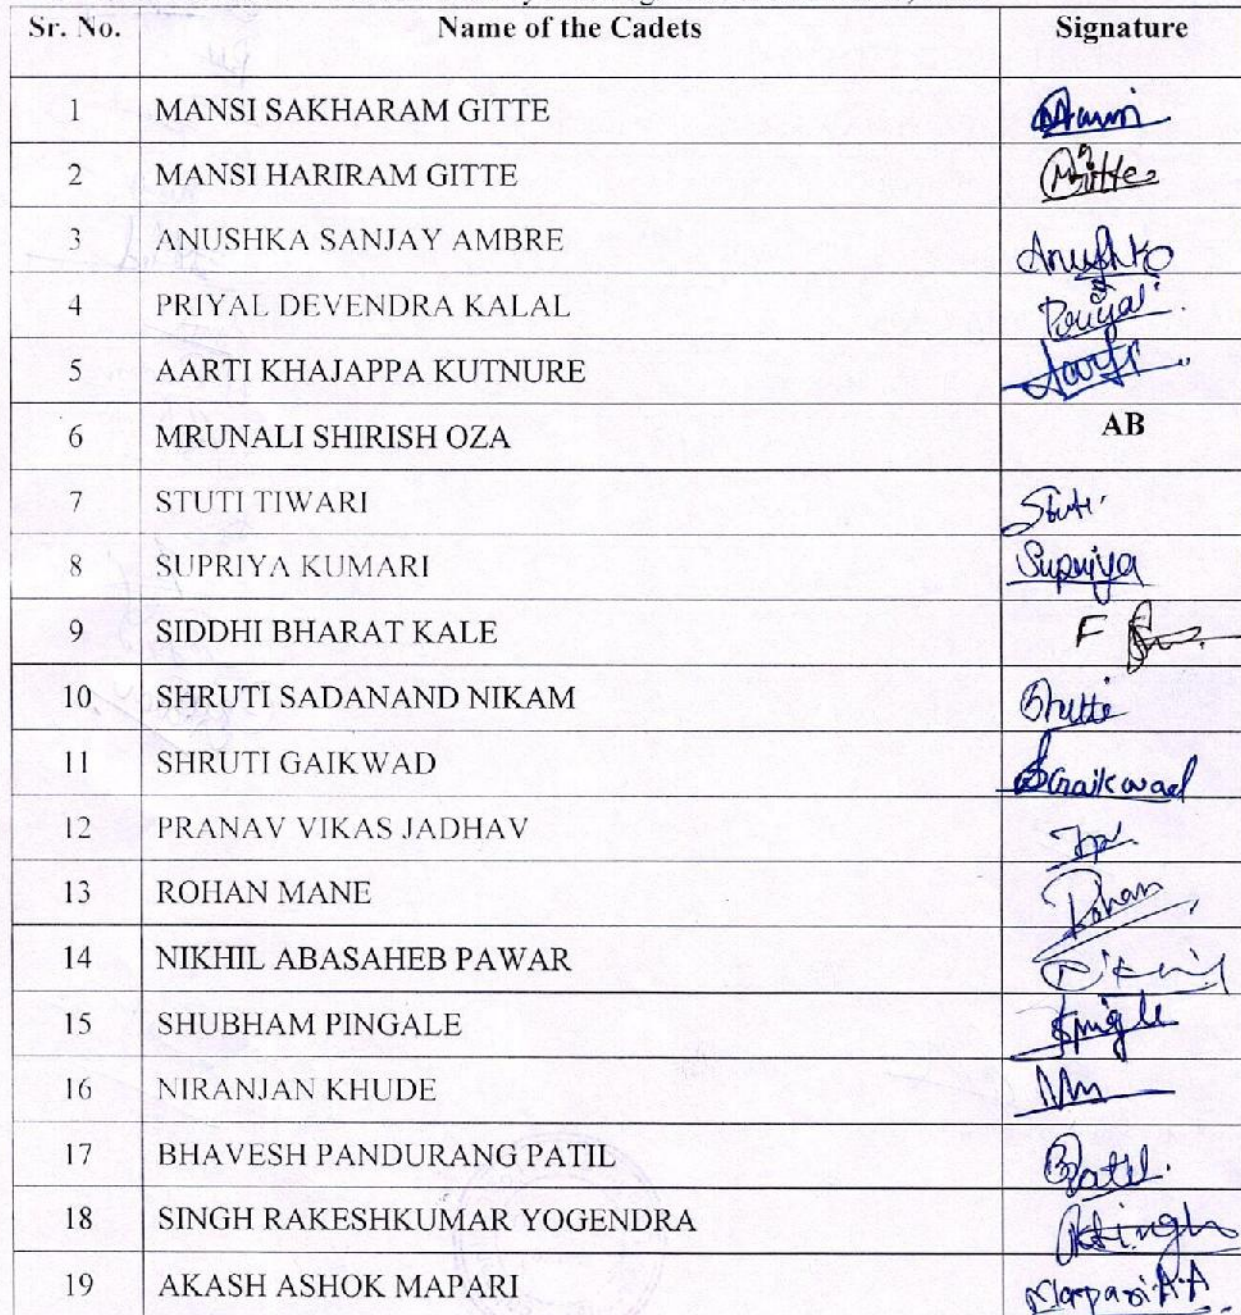 Sr. No. Name of the Cadets Signature
1 MANSI SAKHARAM GITTE
2 MANSI HARIRAM GITTE
3 ANUSHKA SANJAY AMBRE Anushka
4 PRIYAL DEVENDRA KALAL Priyal
5 AARTI KHAJAPPA KUTNURE Aarti
6 MRUNALI SHIRISH OZA AB
7 STUTI TIWARI Stuti
8 SUPRIYA KUMARI Supriya
9 SIDDHI BHARAT KALE F
10 SHRUTI SADANAND NIKAM
11 SHRUTI GAIKWAD SGaikwad
12 PRANAV VIKAS JADHAV
13 ROHAN MANE Rohan
14 NIKHIL ABASAHEB PAWAR Nikhil
15 SHUBHAM PINGALE
16 NIRANJAN KHUDE
17 BHAVESH PANDURANG PATIL BPatil
18 SINGH RAKESHKUMAR YOGENDRA
19 AKASH ASHOK MAPARI Mapari A.A